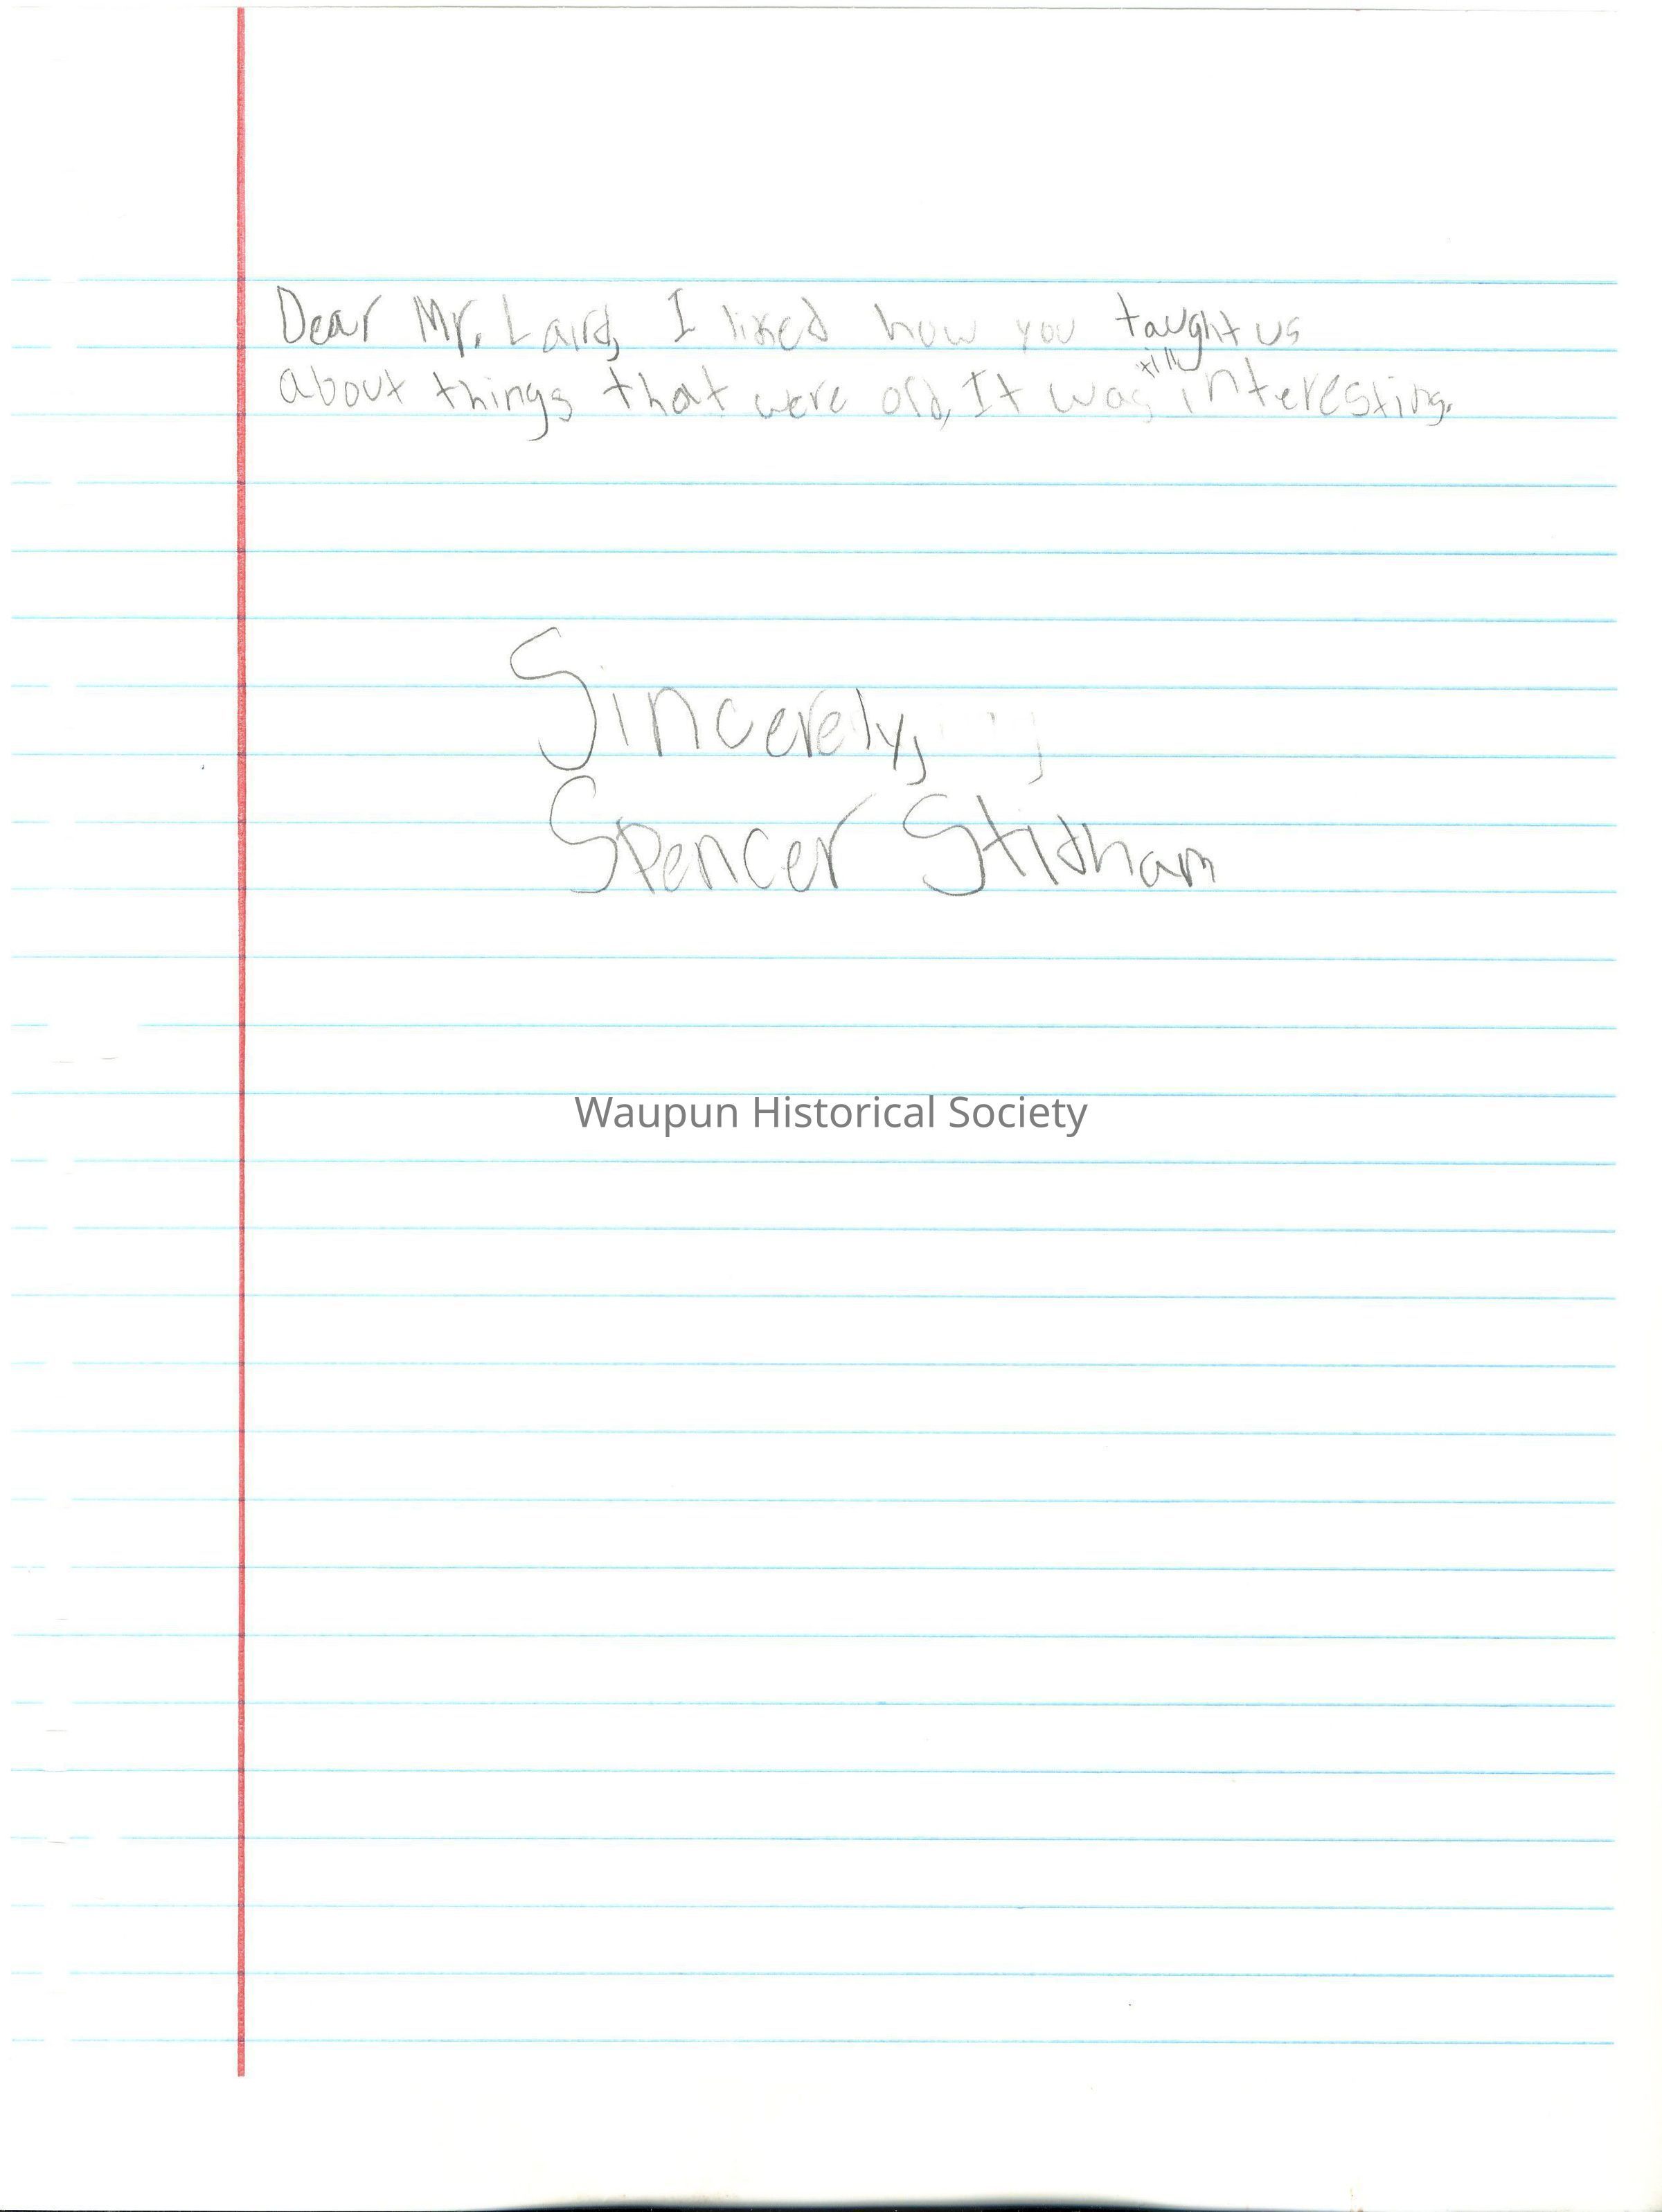 Dear Mr. Laird, I liked how you taught us
about things that were old, It was interesting.
Sincerely,
Spencer Stidham
Waupun Historical Society